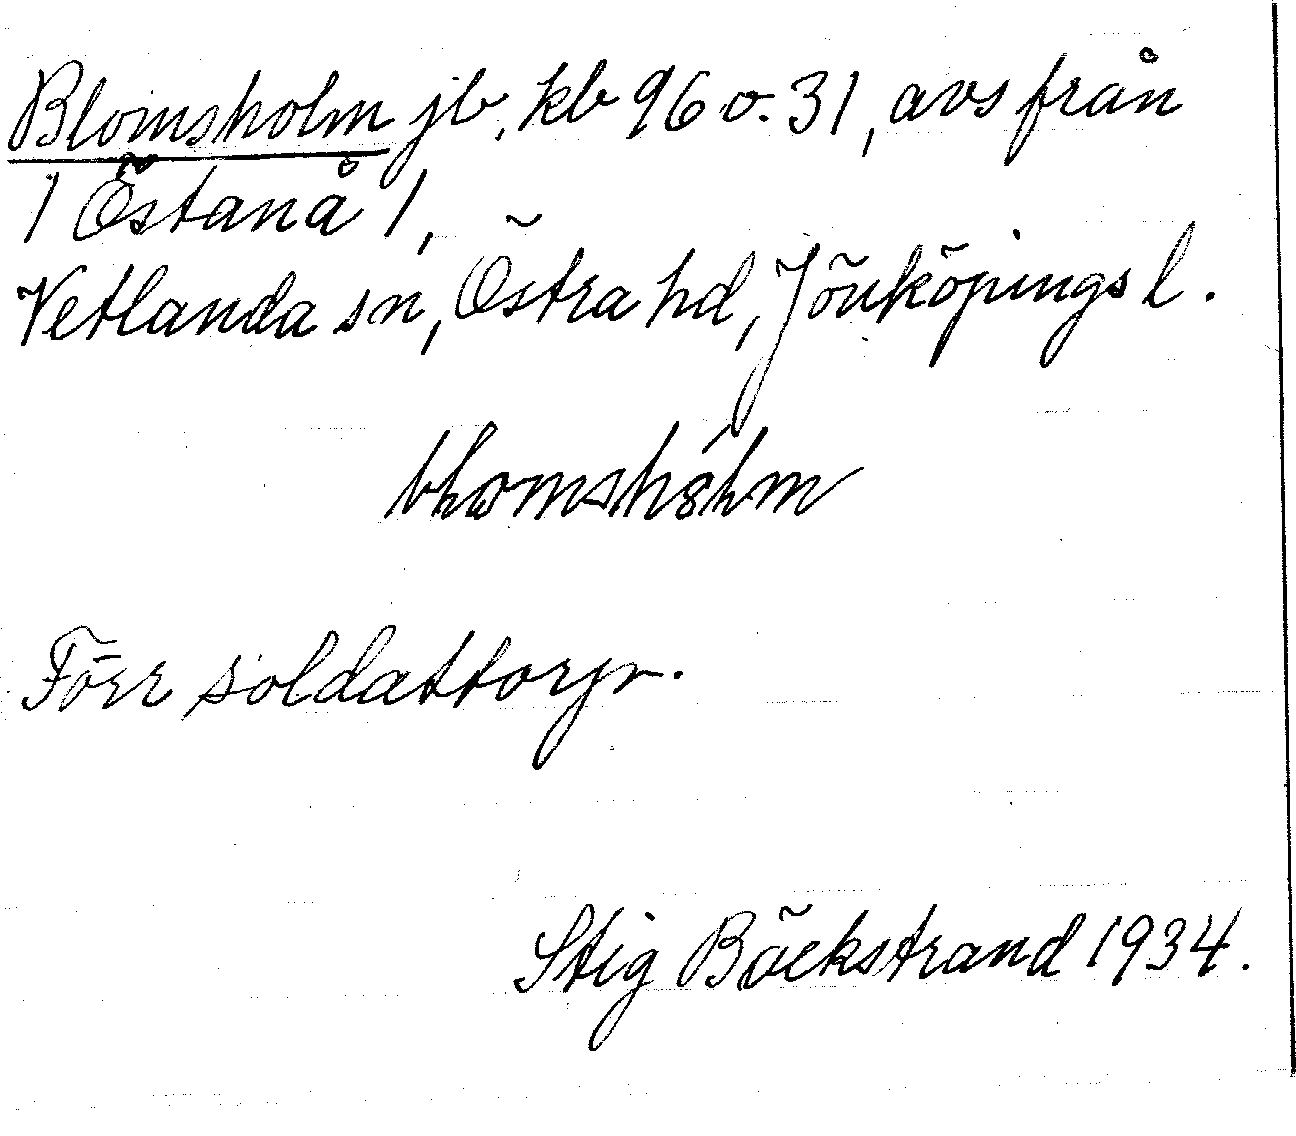 Blomsholm jb, kb 96 o. 31, avs från
1 Östanå 1,
Vetlanda sn, Östra hd, Jönköpings l.
blomshólm
Förr soldattorp.
Stig Bäckstrand 1934.